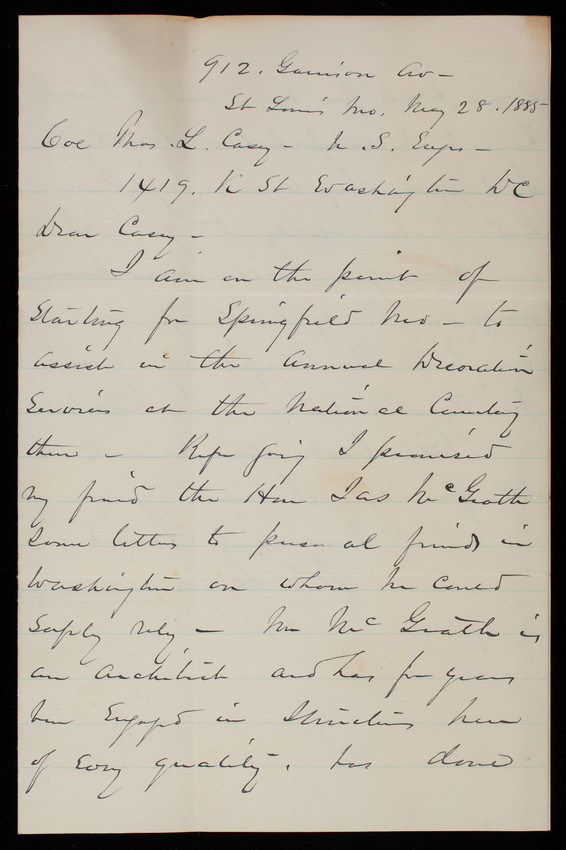 912. Garrison Av -
St Louis Mo. May 28. 1885
Col Thos. L. Casey - U.S. Engrs -
1419. K St Washington DC
Dear Casey -
I am on the point of
starting for Springfield Mo - to
assist in the annual Decoration
Services at the National Cemetery
there - Before going I promised
my friend the Hon Jas McGrath
some letters to personal friends in
Washington on whom he could
safely rely - Mr McGrath is
an architect and has for years
been Engaged in Structures here
of Every quality. has done